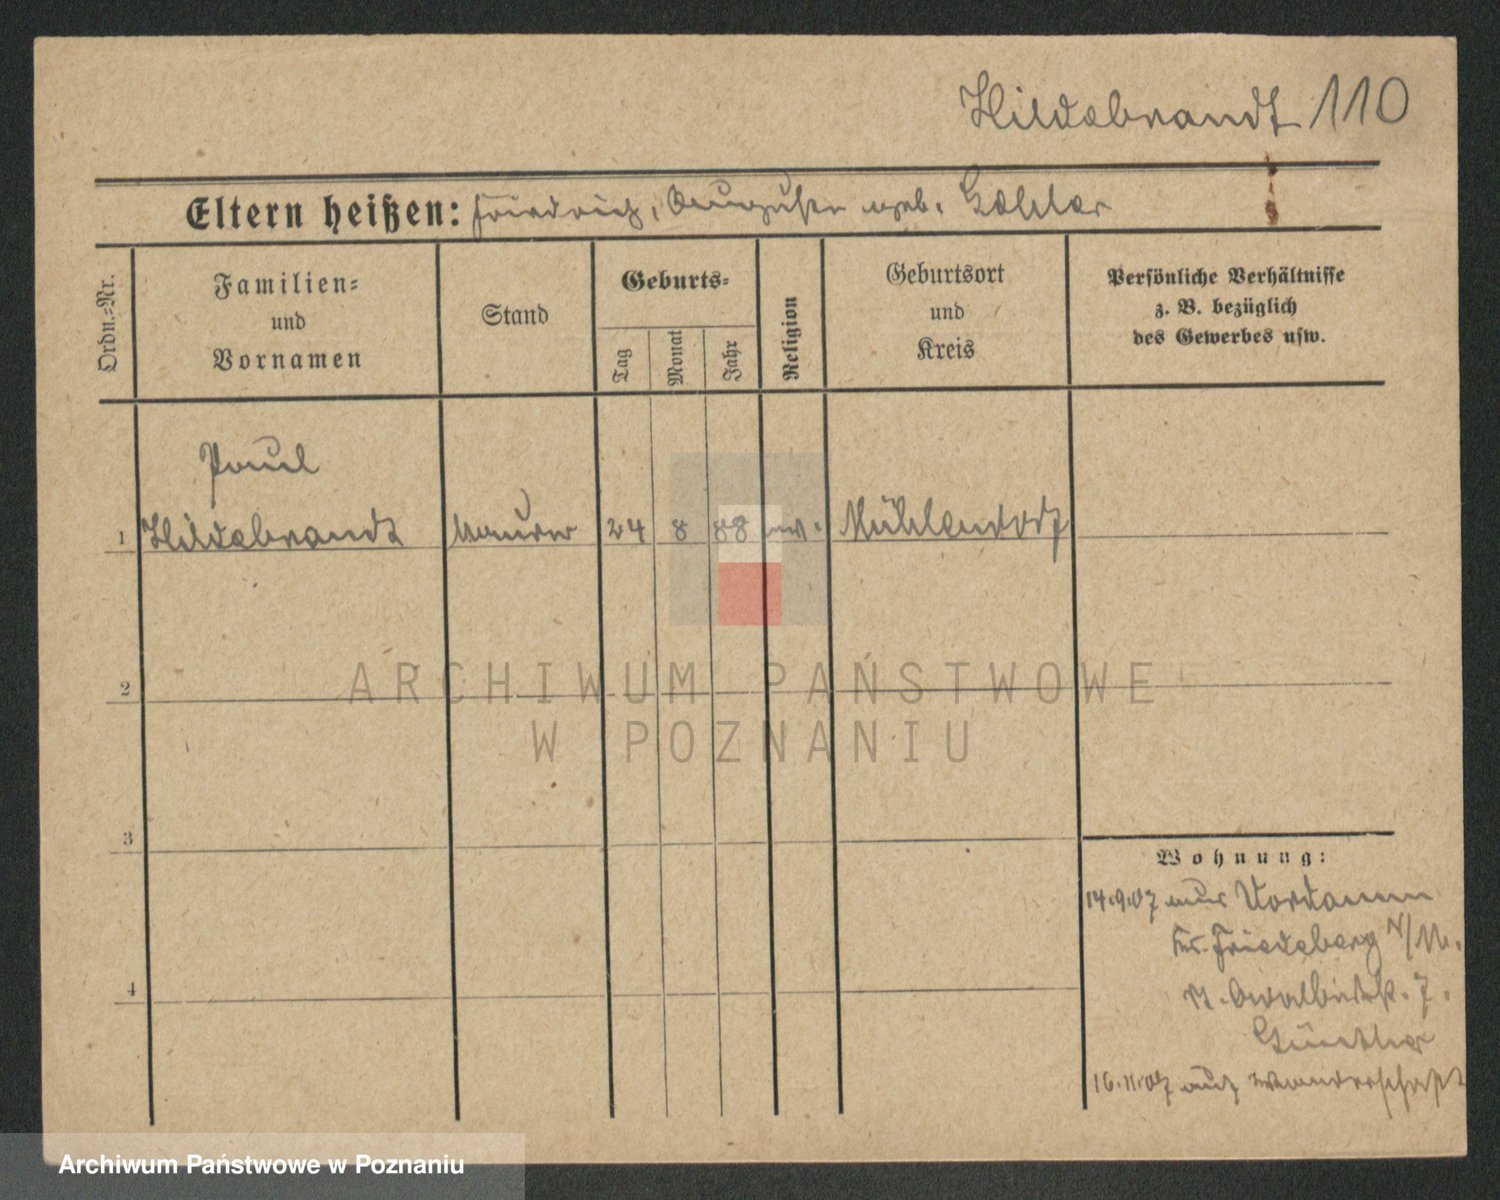 Hildebrandt 110
Eltern heißen: Friedrich, Auguste geb. Köhler
Ordn.-Nr.
Familien-
und
Vornamen
Stand
Geburts-
Tag
Monat
Jahr
Religion
Geburtsort
und
Kreis
Persönliche Verhältnisse
z. B. bezüglich
des Gewerbes usw.
Paul
1 Hildebrandt Maurer 24 8 88 ev. Mühlendorf
2
3
4
Wohnung:
14.9.07 aus Vordamm
Kr. Friedeberg N/M.
n. 7.
Günther
16.11.07 auf Wanderschaft
ARCHIWUM PAŃSTWOWE
W POZNANIU
Archiwum Państwowe w Poznaniu